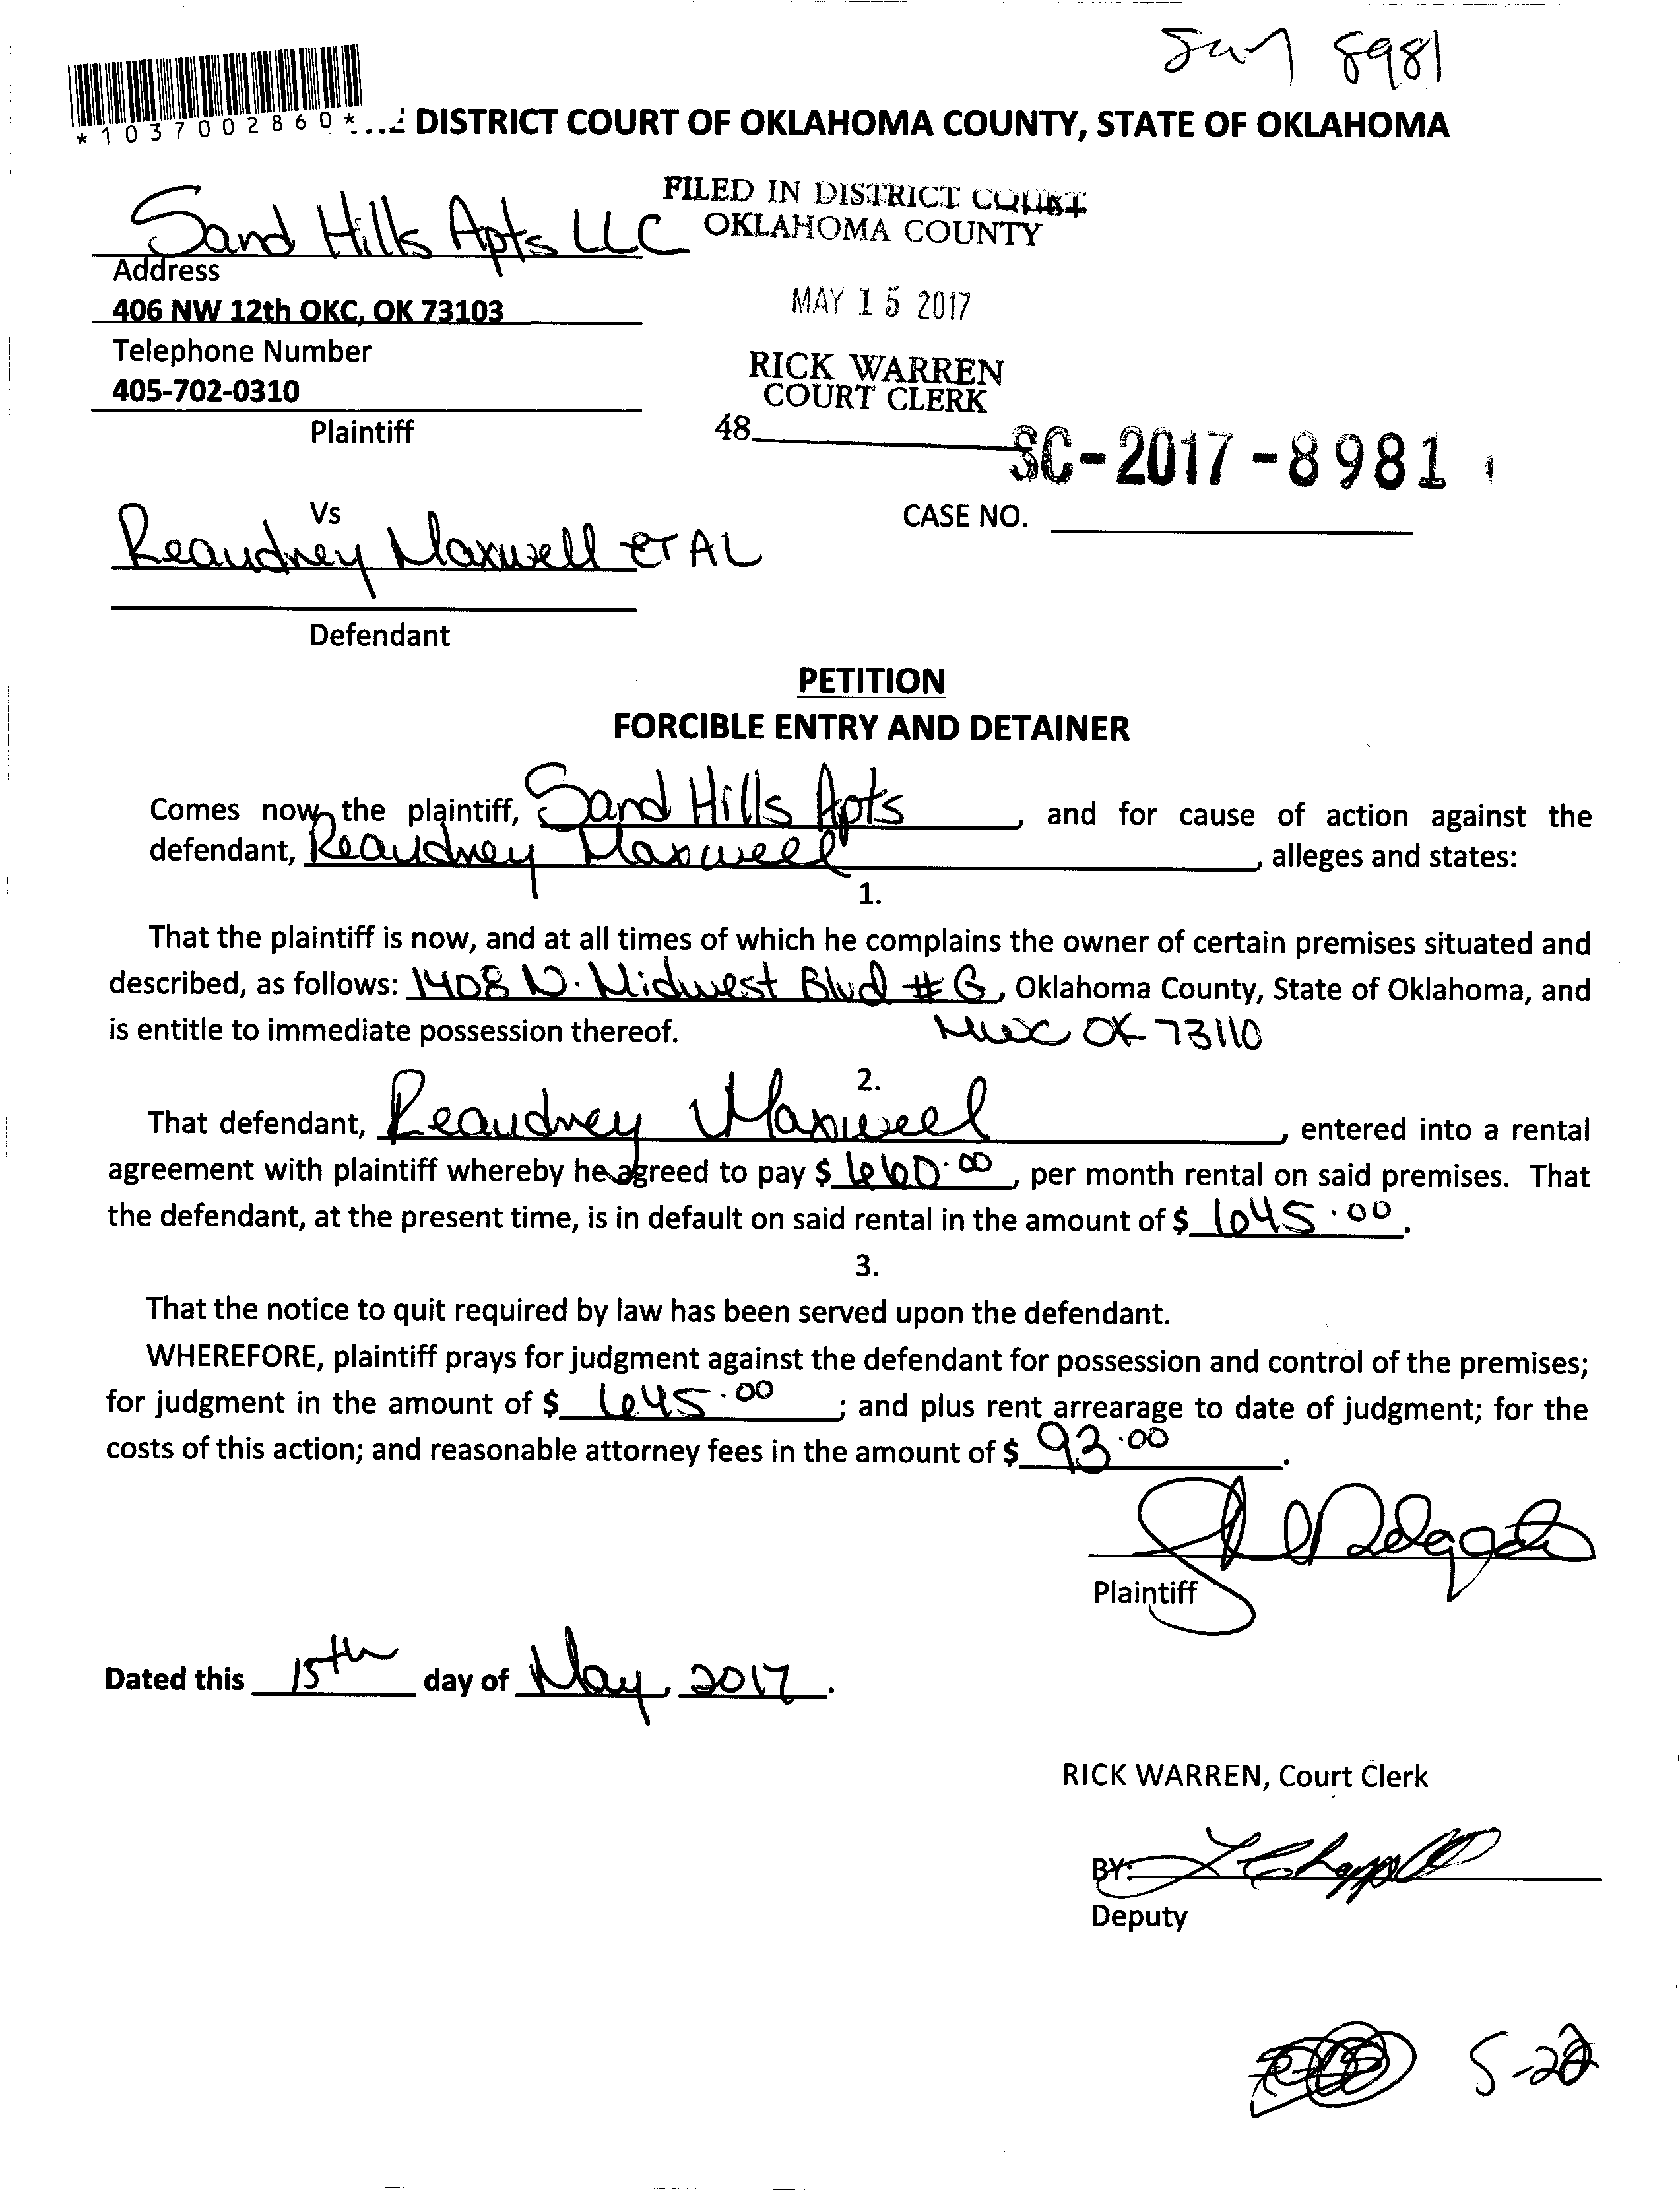 8981
*1037002860*...E DISTRICT COURT OF OKLAHOMA COUNTY, STATE OF OKLAHOMA
FILED IN DISTRICT COURT
OKLAHOMA COUNTY
Sand Hills Apts LLC
Address
406 NW 12th OKC, OK 73103
MAY 15 2017
Telephone Number
405-702-0310
RICK WARREN
COURT CLERK
Plaintiff
48
SC-2017-8981
Vs
CASE NO.
Reaudney Maxwell ET AL
Defendant
PETITION
FORCIBLE ENTRY AND DETAINER
Comes now the plaintiff, Sand Hills Apts, and for cause of action against the
defendant, Reaudney Maxwell, alleges and states:
1.
That the plaintiff is now, and at all times of which he complains the owner of certain premises situated and
described, as follows: 1408 N. Midwest Blvd #G, Oklahoma County, State of Oklahoma, and
is entitle to immediate possession thereof. MWC OK 73110
2.
That defendant, Reaudney Maxwell, entered into a rental
agreement with plaintiff whereby he agreed to pay $ 660.00, per month rental on said premises. That
the defendant, at the present time, is in default on said rental in the amount of $ 645.00.
3.
That the notice to quit required by law has been served upon the defendant.
WHEREFORE, plaintiff prays for judgment against the defendant for possession and control of the premises;
for judgment in the amount of $ 645.00; and plus rent arrearage to date of judgment; for the
costs of this action; and reasonable attorney fees in the amount of $ 93.00.
Delgado
Plaintiff
Dated this 15th day of May, 2017.
RICK WARREN, Court Clerk
BY:
Deputy
5-22